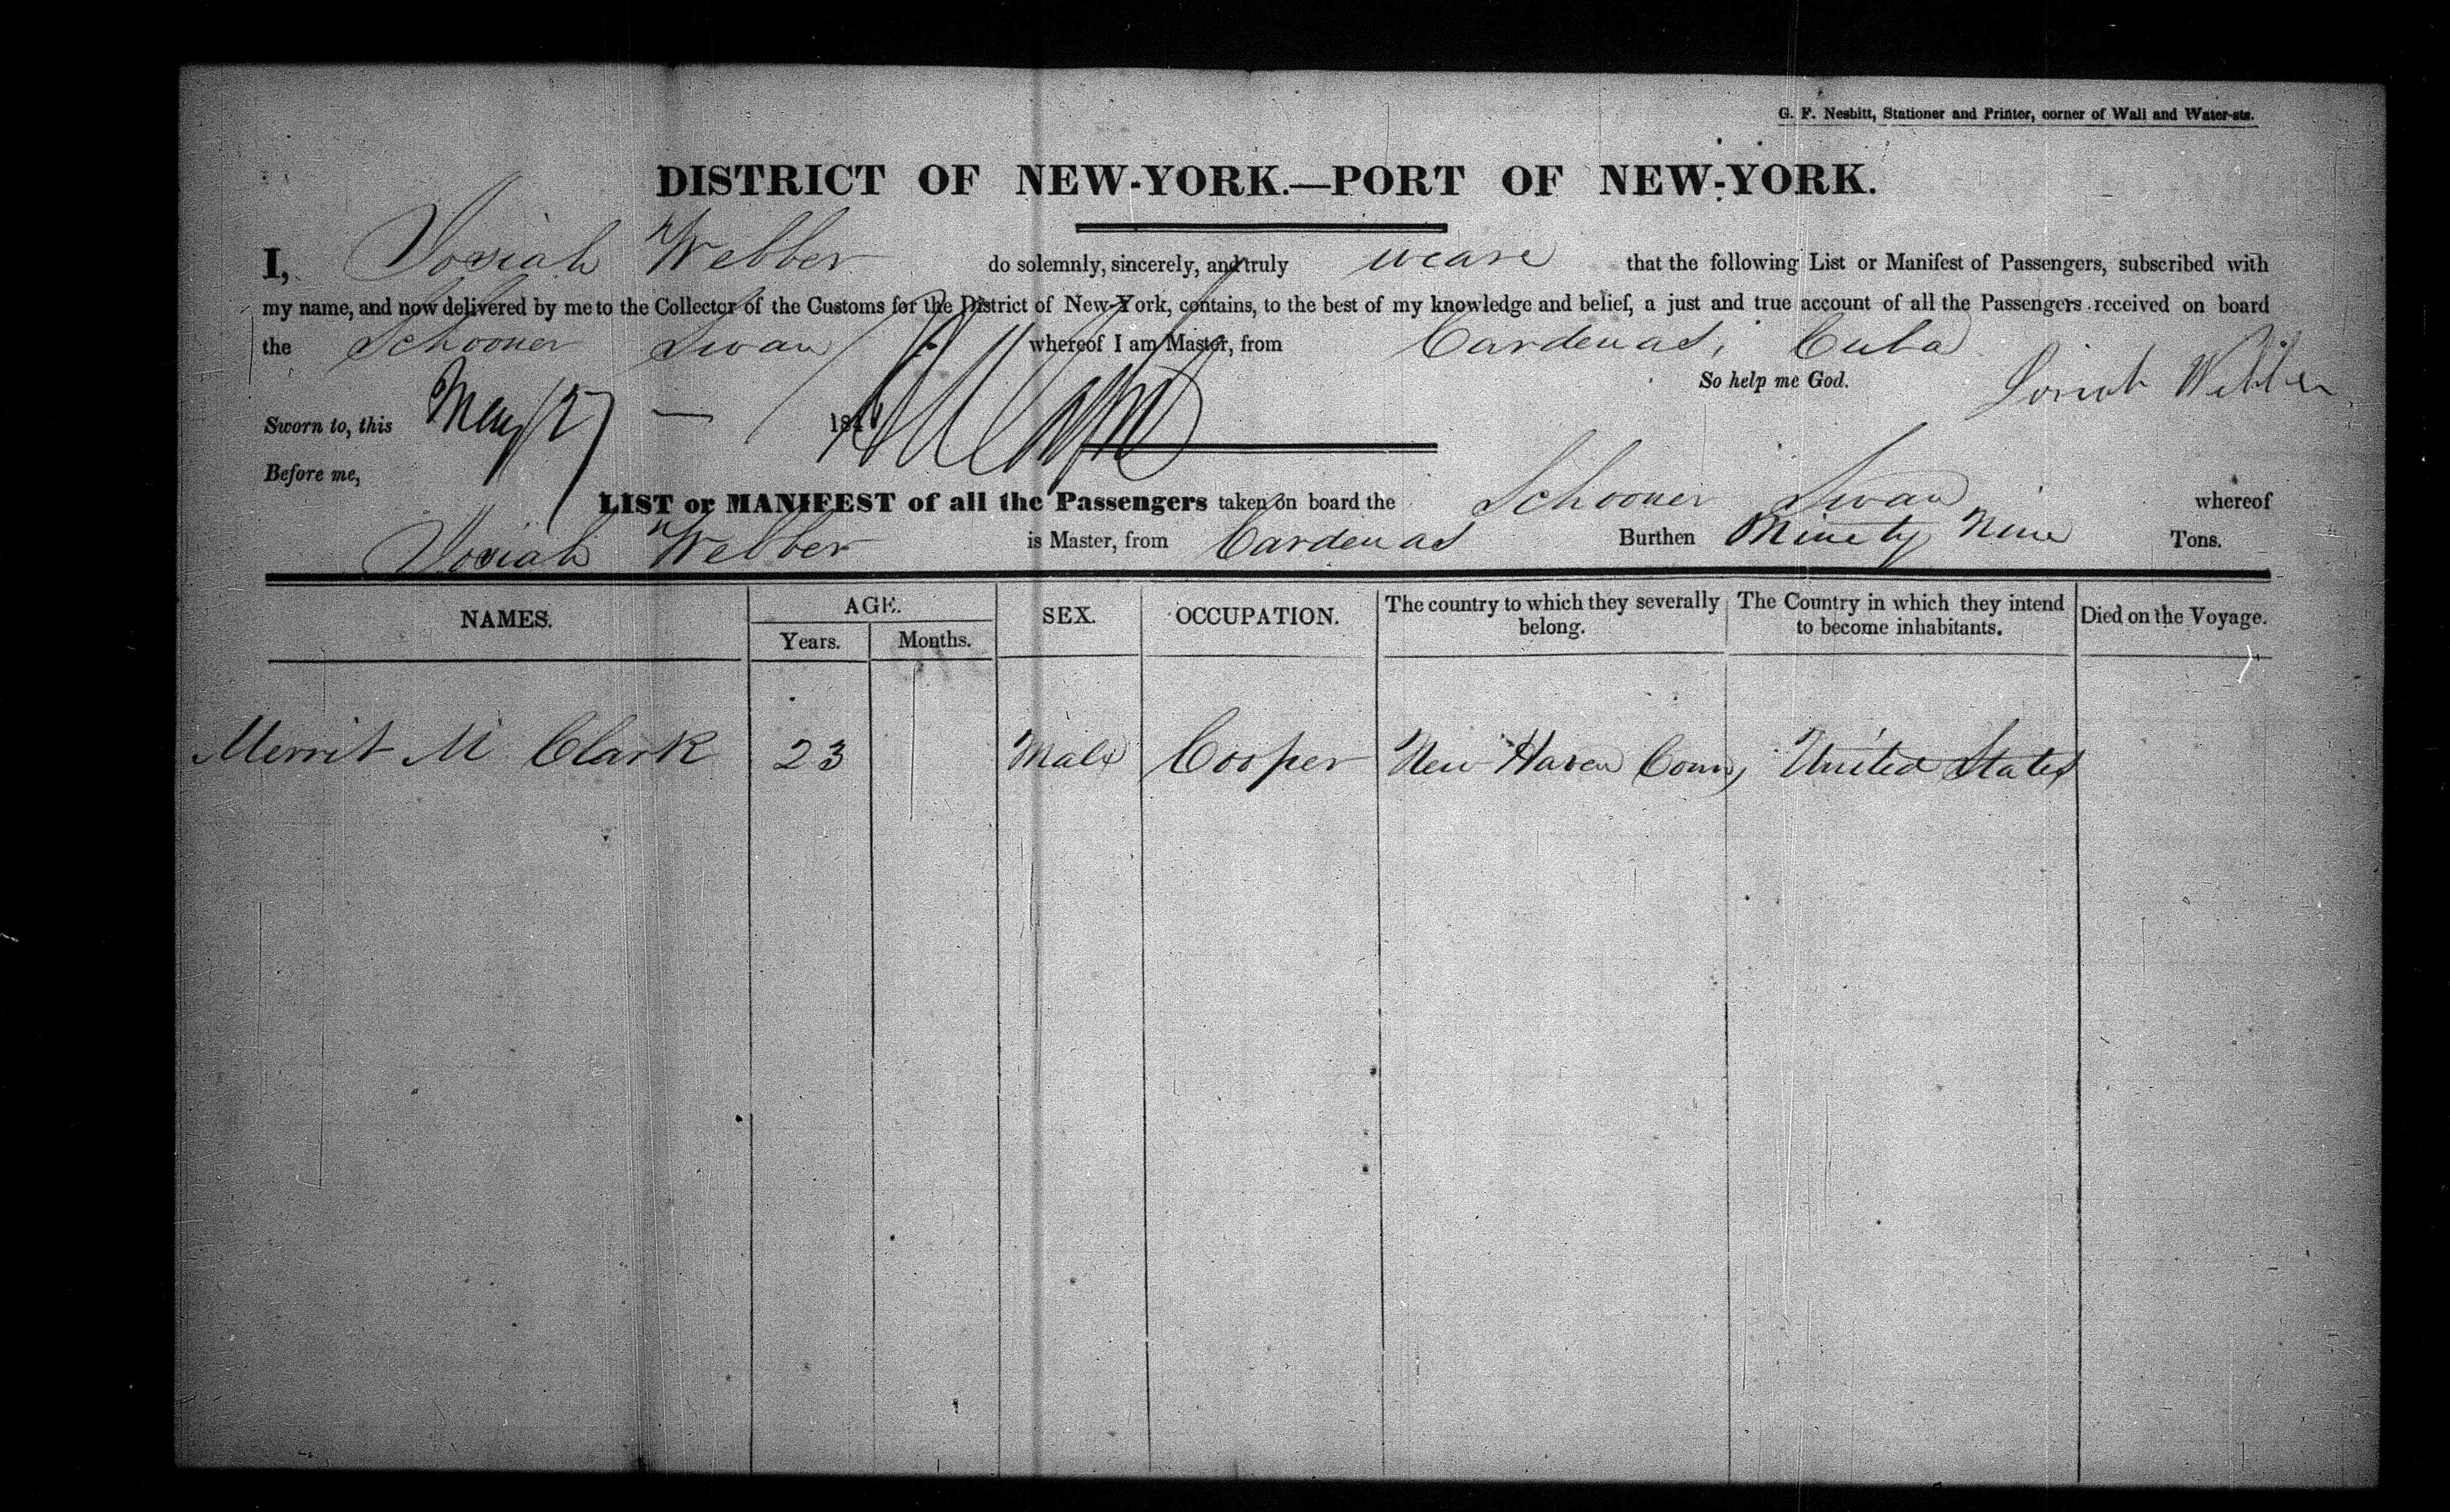 G. F. Nesbitt, Stationer and Printer, corner of Wall and Water-sts.
DISTRICT OF NEW-YORK.—PORT OF NEW-YORK.
I, Josiah Webber do solemnly, sincerely, and truly that the following List or Manifest of Passengers, subscribed with
my name, and now delivered by me to the Collector of the Customs for the District of New-York, contains, to the best of my knowledge and belief, a just and true account of all the Passengers received on board
the Schooner Swan whereof I am Master, from Cardenas, Cuba
So help me God. Josiah Webber
Sworn to, this May 27 — 184
Before me,
LIST or MANIFEST of all the Passengers taken on board the Schooner Swan whereof
Josiah Webber is Master, from Cardenas Burthen Ninety Nine Tons.
NAMES. AGE. Years. Months. SEX. OCCUPATION. The country to which they severally belong. The Country in which they intend to become inhabitants. Died on the Voyage.
Merrit M Clark 23 Male Cooper New Haven Conn, United States